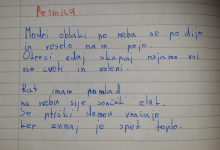 Pesmica
Modri oblaki po nebu se podijo
in veselo nam pojo.
Otroci zdaj skupaj rajamo vsi
vse cveti in zeleni.
Rad imam pomlad
na nebu sije sonček zlat.
Se ptički domov vračajo
ker zunaj je spet toplo.